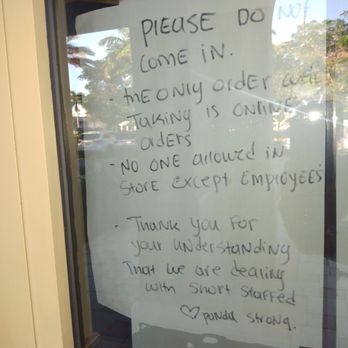 PLEASE DO NOT
COME IN.
- THE ONLY ORDER WE'RE
TAKING IS ONLINE
ORDERS
- NO ONE allowed IN
STORE EXCEPT EMPLOYEES
- THANK YOU FOR
YOUR UNDERSTANDING
THAT WE are dealing
WITH SHORT STAFFED
♡ panda STRONG.